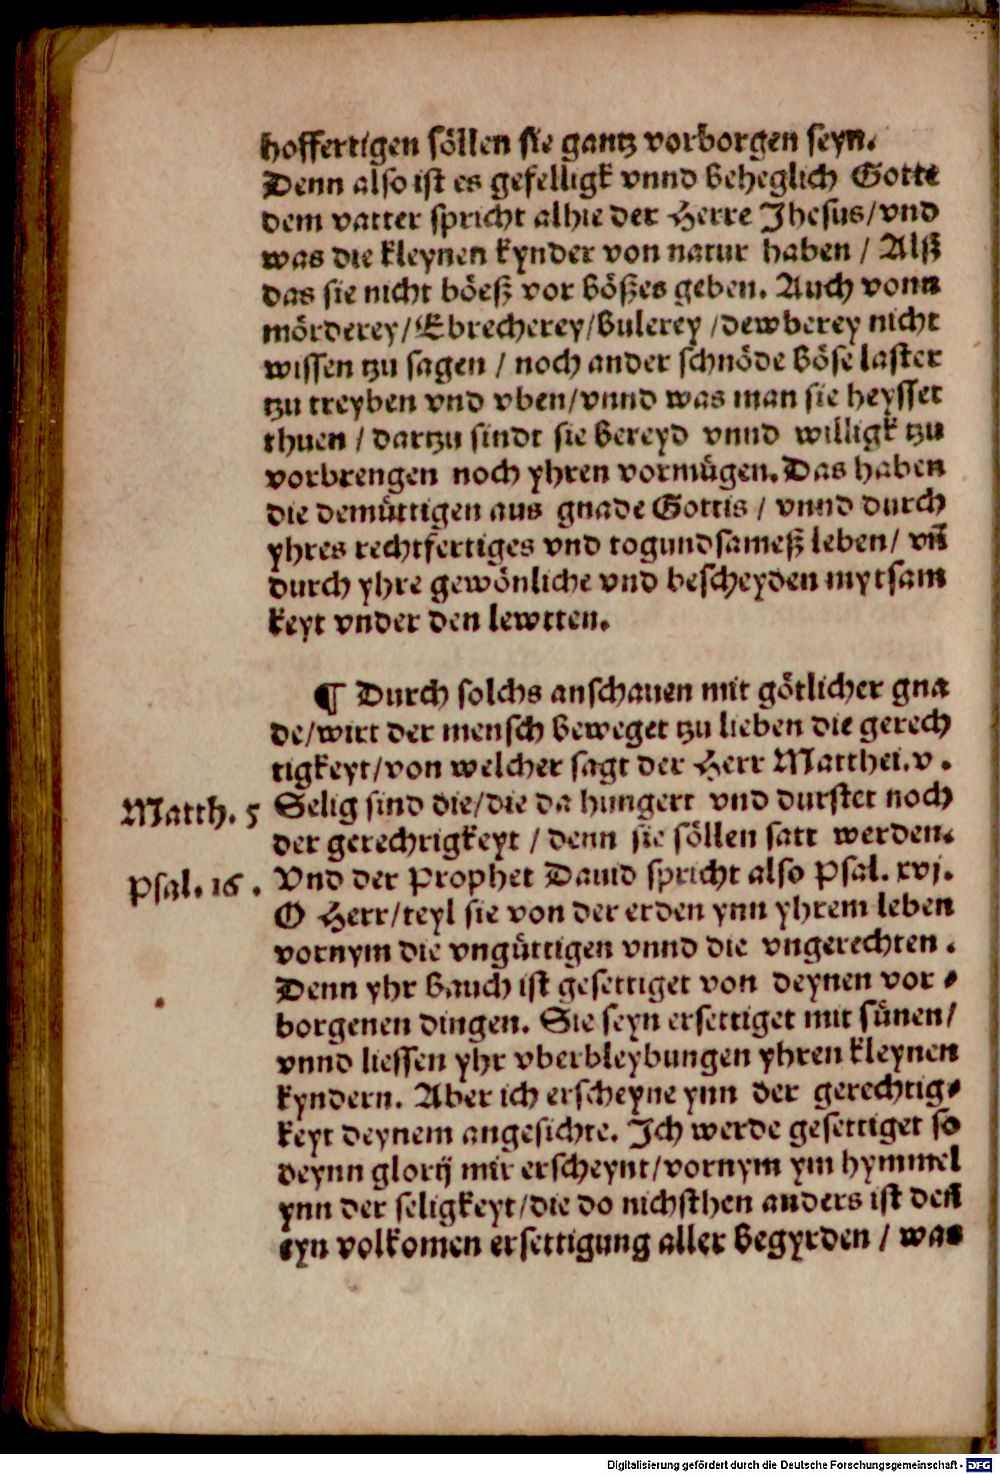 hoffertigen söllen sie gantz vorborgen seyn.
Denn also ist es gefelligk vnnd beheglich Gotte
dem vatter spricht alhie der Herre Jhesus/vnd
was die kleynen kynder von natur haben / Alß
das sie nicht böeß vor bößes geben. Auch vonn
mörderey/Ebrecherey/bulerey /dewberey nicht
wissen tzu sagen / noch ander schnöde böse laster
tzu treyben vnd vben/vnnd was man sie heysset
thuen / dartzu sindt sie bereyd vnnd willigk tzu
vorbrengen noch yhren vormügen. Das haben
die demüttigen aus gnade Gottis / vnnd durch
yhres rechtfertiges vnd togundsameß leben/ vñ
durch yhre gewönliche vnd bescheyden mytsam
keyt vnder den lewtten.
¶ Durch solchs anschauen mit götlicher gna
de/wirt der mensch beweget tzu lieben die gerech
tigkeyt/von welcher sagt der Herr Matthei.v.
Matth. 5 Selig sind die/die da hungert vnd durstet noch
der gerechtigkeyt / denn sie söllen satt werden.
Psal. 16. Vnd der Prophet Dauid spricht also Psal. xvj.
O Herr/teyl sie von der erden ynn yhrem leben
vornym die vngüttigen vnnd die vngerechten.
Denn yhr bauch ist gesettiget von deynen vor⸗
borgenen dingen. Sie seyn ersettiget mit sünen/
vnnd liessen yhr vberbleybungen yhren kleynen
kyndern. Aber ich erscheyne ynn der gerechtig⸗
keyt deynem angesichte. Jch werde gesettiget so
deynn glorij mir erscheynt/vornym ym hymmel
ynn der seligkeyt/die do nichsthen anders ist deñ
eyn volkomen ersettigung aller begyrden / was
Digitalisierung gefördert durch die Deutsche Forschungsgemeinschaft - DFG